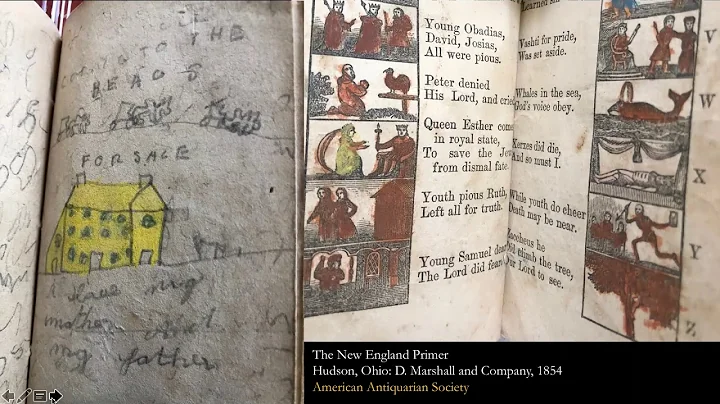 THE
TO
FOR SALE
my
mother and
my father
Young Obadias,
David, Josias,
All were pious.
Peter denied
His Lord, and cried
Queen Esther come
in royal state,
To save the Jew
from dismal fate
Youth pious Ruth,
Left all for truth.
Young Samuel dear
The Lord did fear
Vashti for pride,
Was set aside.
Whales in the sea,
God's voice obey.
did die,
And so must I.
While youth do cheer
Death may be near.
he
climb the tree,
Our Lord to see.
V
W
X
Y
Z
The New England Primer
Hudson, Ohio: D. Marshall and Company, 1854
American Antiquarian Society